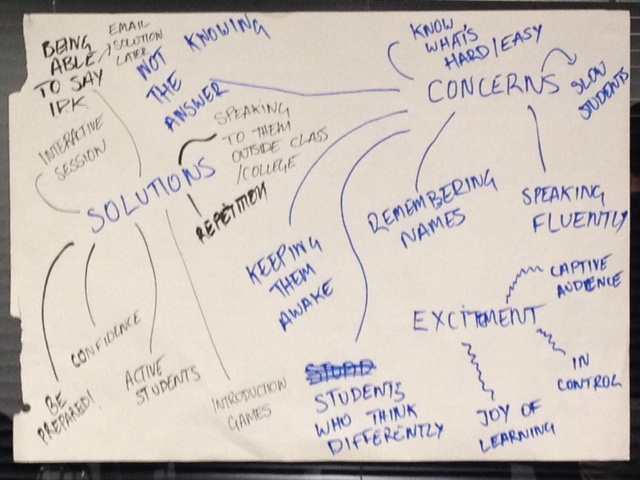 BEING
ABLE
TO SAY
I.D.K
EMAIL
SOLUTION
LATER
NOT KNOWING
THE
ANSWER
KNOW
WHAT'S
HARD/EASY
CONCERNS
SLOW
STUDENTS
INTERACTIVE
SESSION
SPEAKING
TO THEM
OUTSIDE CLASS
/COLLEGE
SOLUTIONS
REPETITION
REMEMBERING
NAMES
SPEAKING
FLUENTLY
KEEPING
THEM
AWAKE
CAPTIVE
AUDIENCE
EXCITEMENT
IN
CONTROL
JOY OF
LEARNING
CONFIDENCE
BE
PREPARED!
ACTIVE
STUDENTS
INTRODUCTION
GAMES
STUDENTS
WHO THINK
DIFFERENTLY